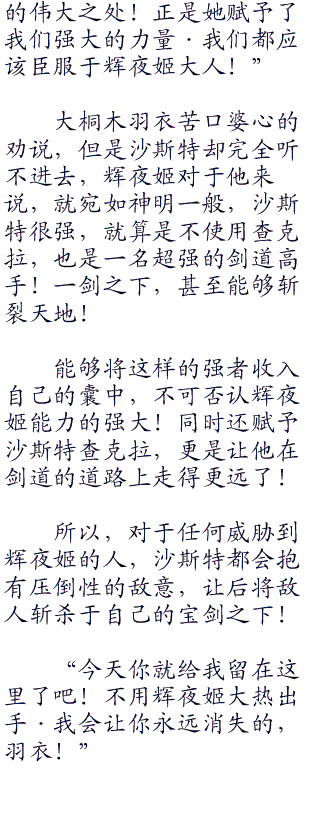 的伟大之处！正是她赋予了
我们强大的力量·我们都应
该臣服于辉夜姬大人！”
大桐木羽衣苦口婆心的
劝说，但是沙斯特却完全听
不进去，辉夜姬对于他来
说，就宛如神明一般，沙斯
特很强，就算是不使用查克
拉，也是一名超强的剑道高
手！一剑之下，甚至能够斩
裂天地！
能够将这样的强者收入
自己的囊中，不可否认辉夜
姬能力的强大！同时还赋予
沙斯特查克拉，更是让他在
剑道的道路上走得更远了！
所以，对于任何威胁到
辉夜姬的人，沙斯特都会抱
有压倒性的敌意，让后将敌
人斩杀于自己的宝剑之下！
“今天你就给我留在这
里了吧！不用辉夜姬大热出
手·我会让你永远消失的，
羽衣！”